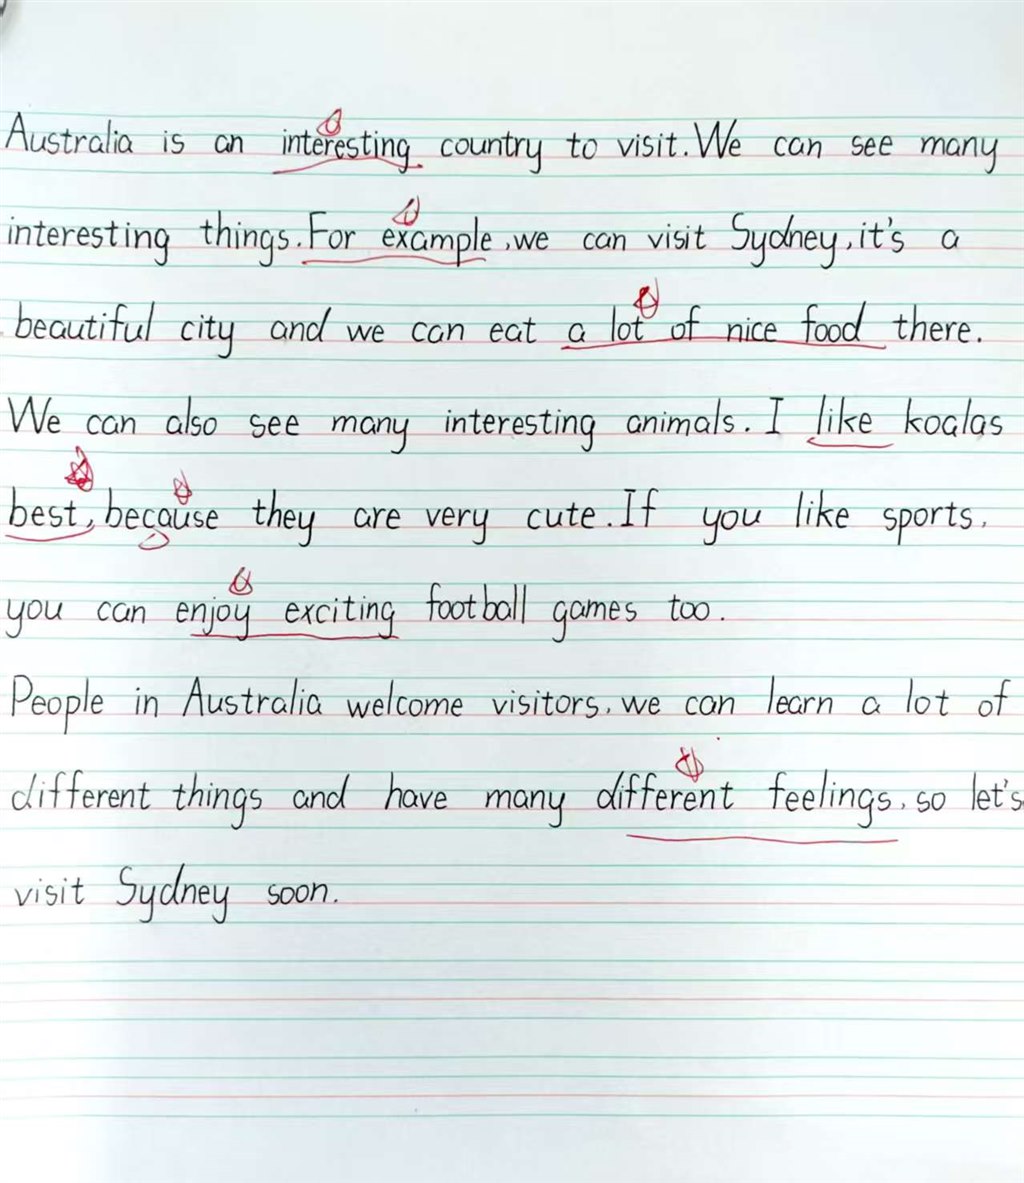 Australia is an interesting country to visit. We can see many
interesting things. For example, we can visit Sydney, it's a
beautiful city and we can eat a lot of nice food there.
We can also see many interesting animals. I like koalas
best, because they are very cute. If you like sports,
you can enjoy exciting football games too.
People in Australia welcome visitors, we can learn a lot of
different things and have many different feelings, so let's
visit Sydney soon.